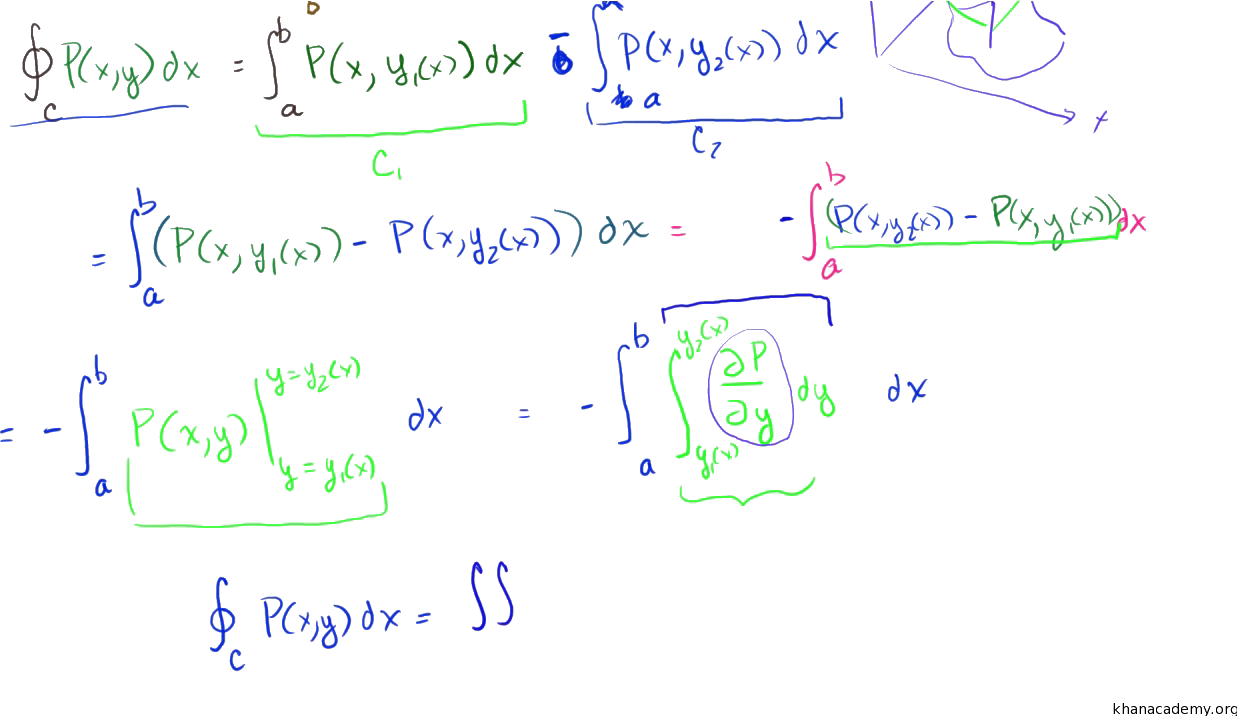 ∮_C P(x,y) dx = ∫_a^b P(x, y₁(x)) dx − ∫_a P(x, y₂(x)) dx
C₁
C₂
x
= ∫_a^b (P(x, y₁(x)) − P(x, y₂(x))) dx = − ∫_a^b (P(x, y₂(x)) − P(x, y₁(x))) dx
= − ∫_a^b P(x,y) |_{y = y₁(x)}^{y = y₂(x)} dx = − ∫_a^b ∫_{y₁(x)}^{y₂(x)} ∂P/∂y dy dx
∮_C P(x,y) dx = ∫∫
khanacademy.org